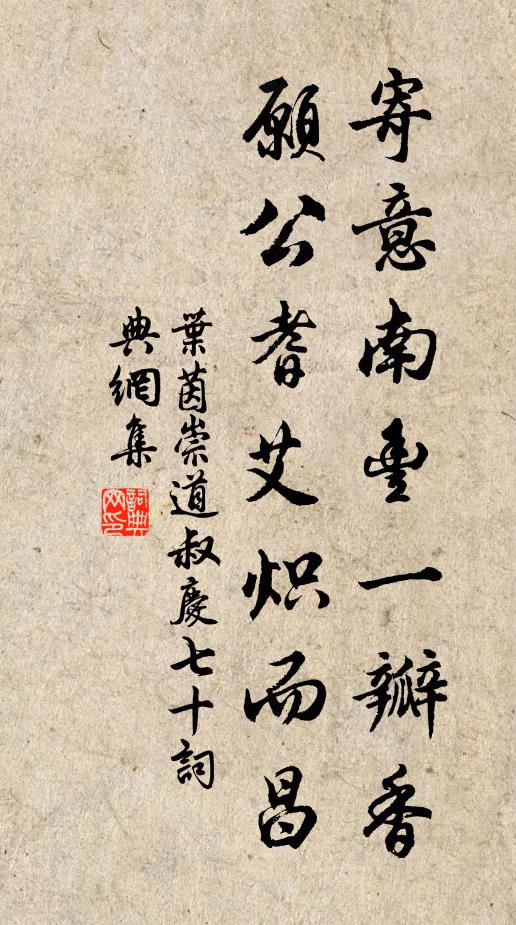 寄意南豐一瓣香
願公耆艾炽而昌
葉茵崇道叔慶七十詞
典網集
詞典網印